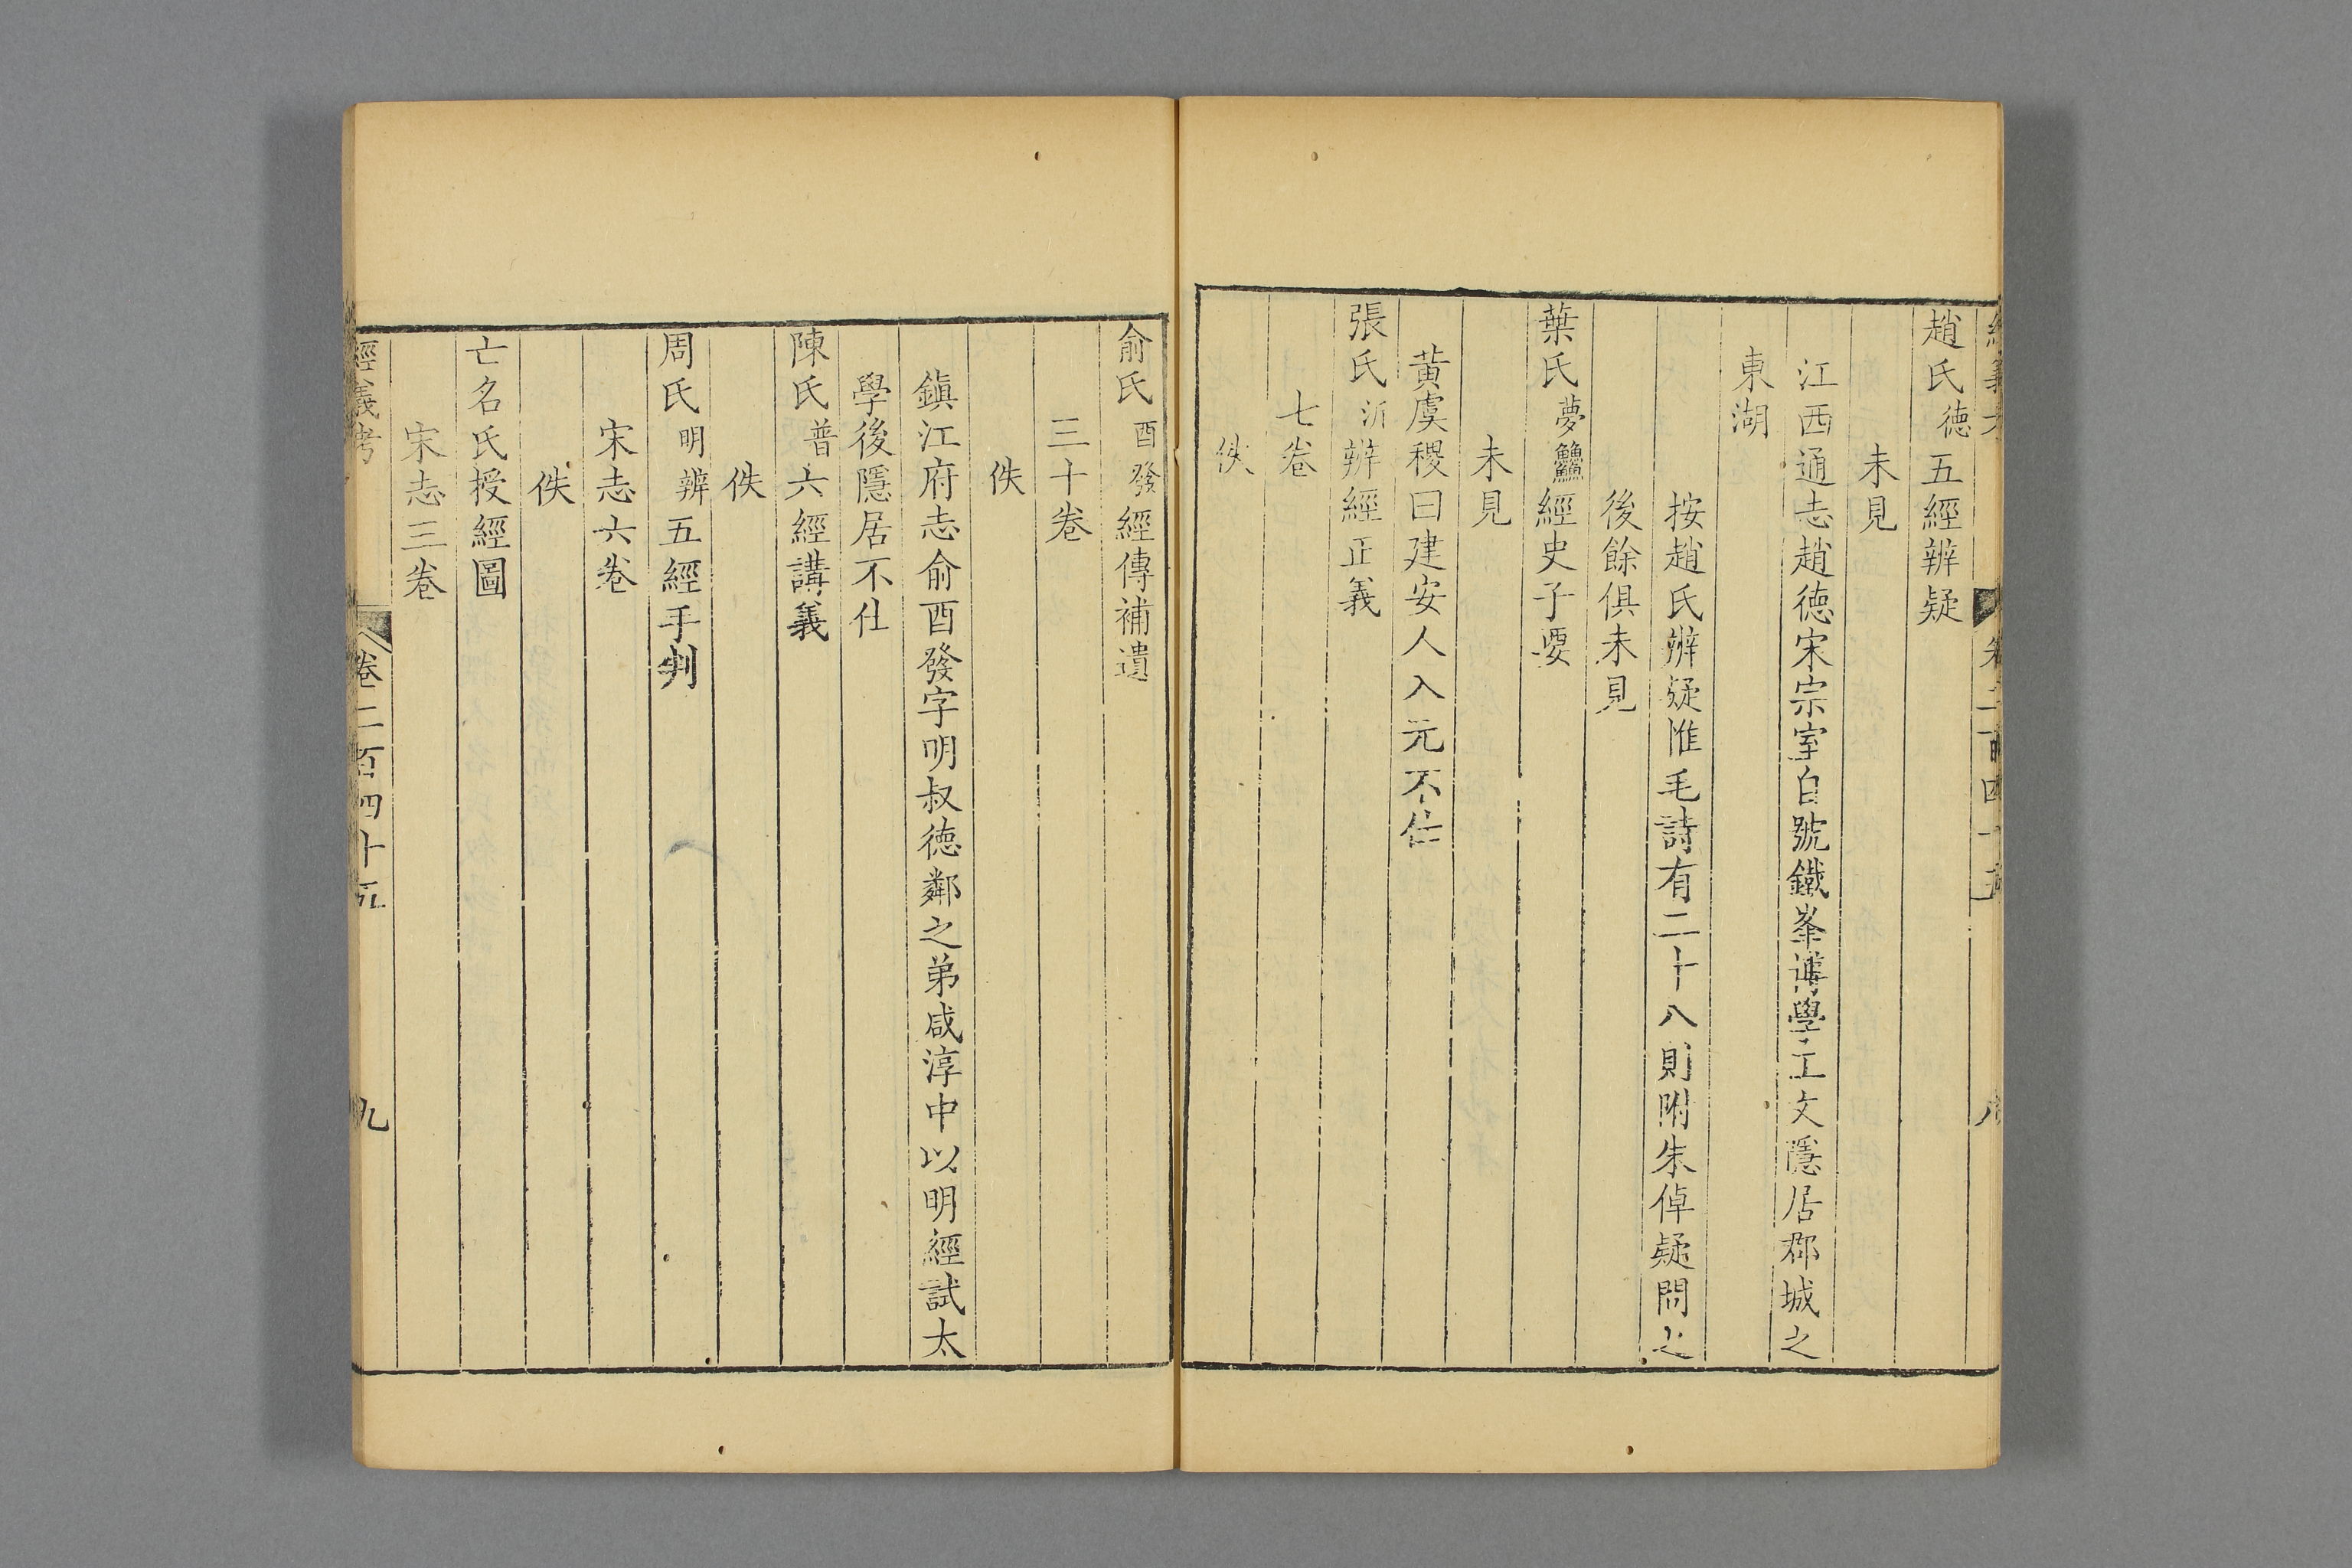 經義考 卷二百四十五 八
趙氏德五經辨疑
未見
江西通志趙德宋宗室自號鐵峯博學工文隱居郡城之
東湖
按趙氏辨疑惟毛詩有二十八則附朱倬疑問之
後餘俱未見
葉氏夢鱻經史子要
未見
黃虞稷曰建安人入元不仕
張氏沂辨經正義
七卷
佚
俞氏酉發經傳補遺
三十卷
佚
鎭江府志俞酉發字明叔徳鄰之弟咸淳中以明經試太
學後隱居不仕
陳氏普六經講義
佚
周氏明辨五經手判
宋志六卷
佚
亡名氏授經圖
宋志三卷
經義考 卷二百四十五 九